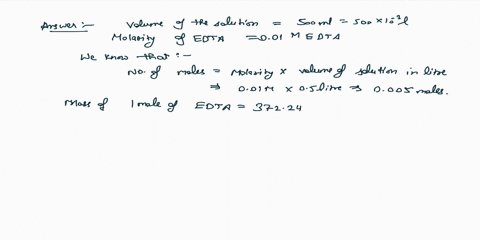 Answer:- Volume of the solution = 500ml = 500 × 10⁻³l
Molarity of EDTA = 0.01 M EDTA
We know that:-
No. of moles = Molarity × volume of solution in litre
⇒ 0.01M × 0.5 litre ⇒ 0.005 moles.
Mass of 1 mole of EDTA = 372.24